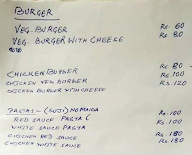 BURGER
VEG. BURGER Rs. 60
VEG BURGER WITH CHEESE Rs 80
CHICKEN BURGER Rs. 80
CHICKEN VEG BURGER Rs. 100
CHICKEN BURGER WITH CHEESE Rs. 120
PASTAS - (SUJI) NO MAIDA
RED SAUCE PASTA Rs. 100
WHITE SAUCE PASTA Rs. 100
CHICKEN RED SAUCE Rs. 180
CHICKEN WHITE SAUCE Rs. 180